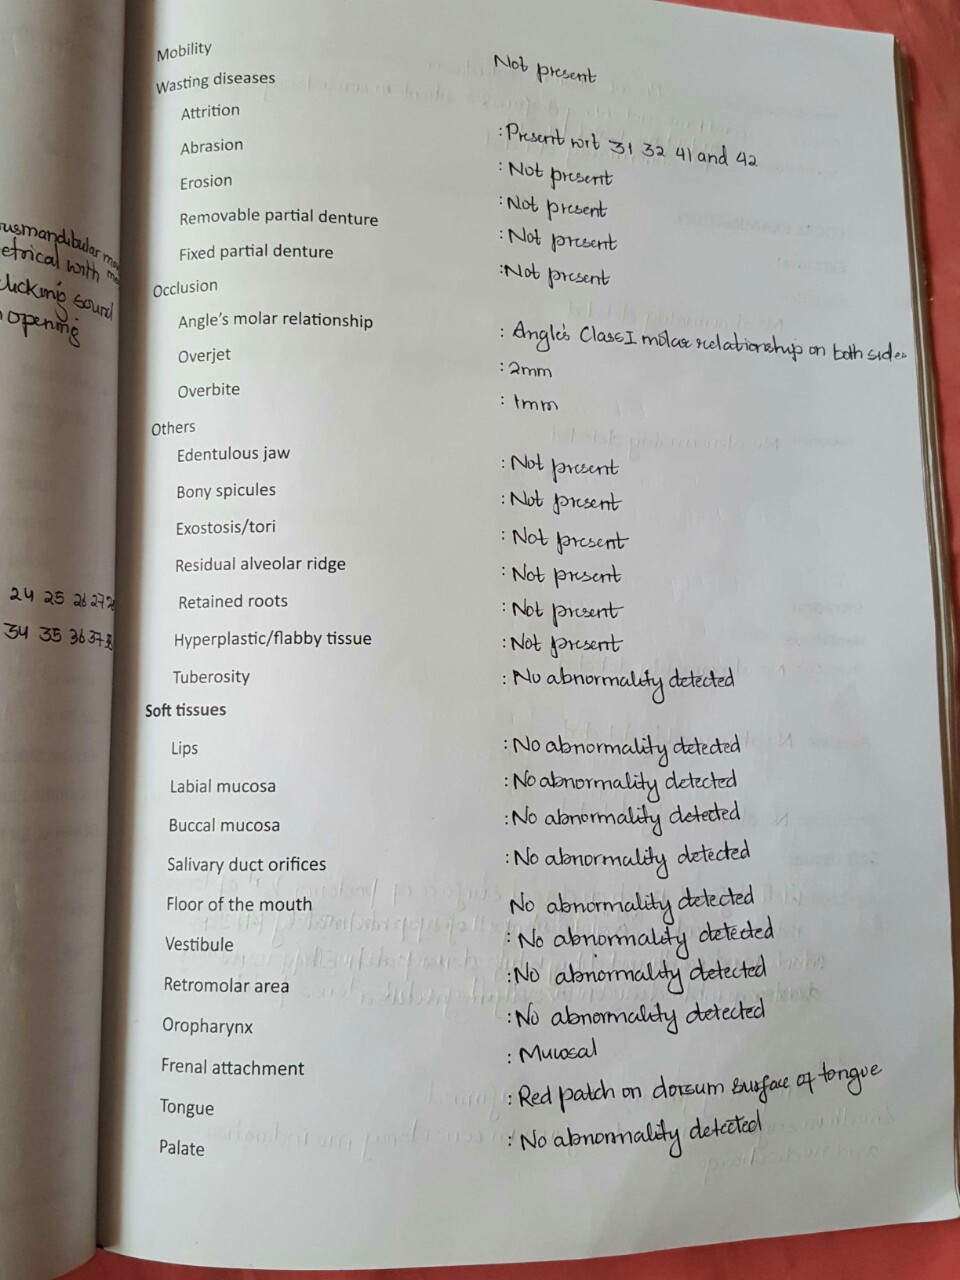 usmandibular
etrical with
licking sound
opening
24 25 26 27 28
34 35 36 37 38
Mobility Not present
Wasting diseases
Attrition : Present wrt 31 32 41 and 42
Abrasion : Not present
Erosion : Not present
Removable partial denture : Not present
Fixed partial denture : Not present
Occlusion
Angle's molar relationship : Angle's Class I molar relationship on both sides
Overjet : 2mm
Overbite : 1mm
Others
Edentulous jaw : Not present
Bony spicules : Not present
Exostosis/tori : Not present
Residual alveolar ridge : Not present
Retained roots : Not present
Hyperplastic/flabby tissue : Not present
Tuberosity : No abnormality detected
Soft tissues
Lips : No abnormality detected
Labial mucosa : No abnormality detected
Buccal mucosa : No abnormality detected
Salivary duct orifices : No abnormality detected
Floor of the mouth No abnormality detected
Vestibule : No abnormality detected
Retromolar area : No abnormality detected
Oropharynx : No abnormality detected
Frenal attachment : Mucosal
Tongue : Red patch on dorsum surface of tongue
Palate : No abnormality detected